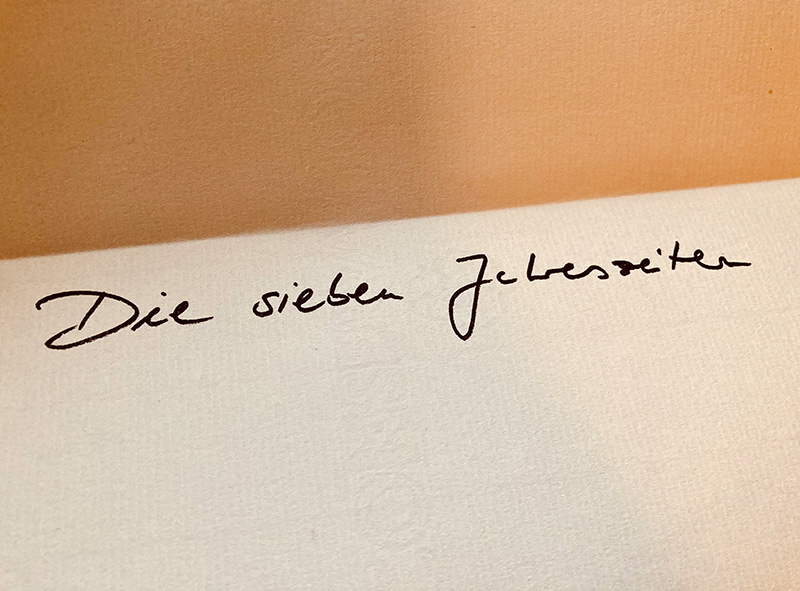 Die sieben Jahreszeiten